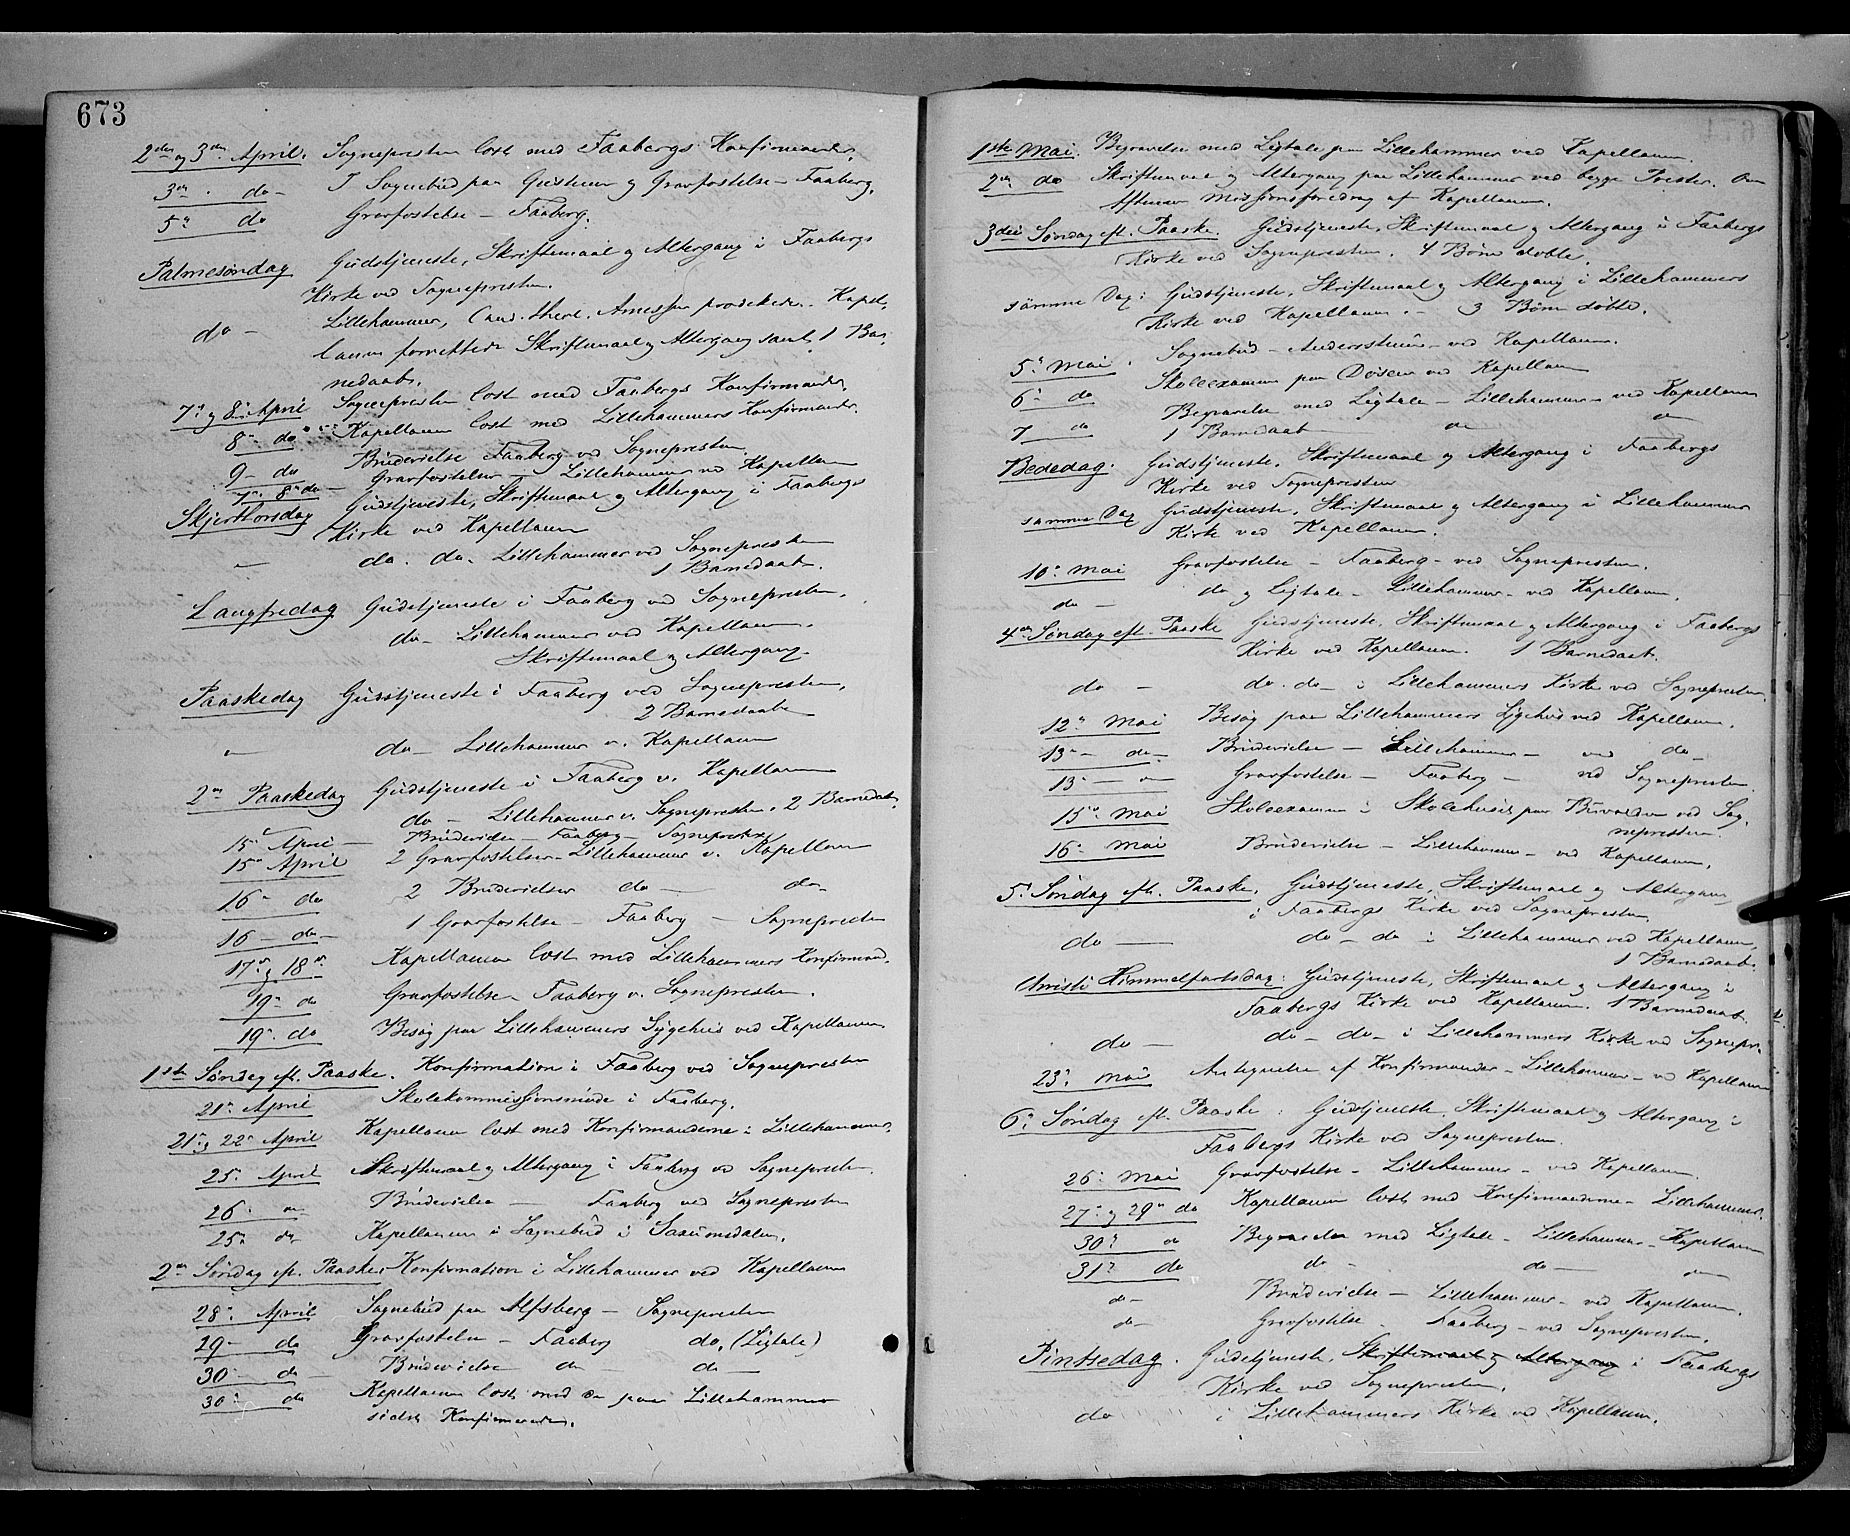 673
2den og 3die April. Sognepresten læst med Faabergs Konfirmander.
3die do - I Sognebud paa Gustum og Gravfæstelse - Faaberg.
5te do Gravfæstelse - Faaberg.
Palmesøndag Gudstjeneste, Skriftemaal og Altergang i Faabergs
Kirke ved Sognepresten.
do - Lillehammer, Cand. theol. Arnesen prædikede. Kapel-
lanen forrettede Skriftemaal og Altergang samt 1 Bar-
nedaab.
7de og 8de April Sognepresten læst med Faabergs Konfirmander
8de do Kapellanen læst med Lillehammers Konfirmander.
9 - do Brudevielse Faaberg ved Sognepresten.
7de 8de do - Gravfæstelser - Lillehammer ved Kapellan
Skjærthorsdag Gudstjeneste, Skriftemaal og Altergang i Faabergs
Kirke ved Kapellanen
" do. do. Lillehammer ved Sognepresten
1 Barnedaab.
Langfredag Gudstjeneste i Faaberg ved Sognepresten.
do - Lillehammer ved Kapellanen.
Skriftemaal og Altergang.
Paaskedag Gudstjeneste i Faaberg ved Sognepresten.
2 Barnedaabe
" do - Lillehammer v. Kapellanen
2den Paaskedag Gudstjeneste i Faaberg v. Kapellanen
do - Lillehammer v. Sognepresten. 2 Barnedaab
15de April - Brudevielse - Faaberg - Sognepresten
15de April 2 Gravfæstelser - Lillehammer v. Kapellanen
16de do 2 Brudevielser do - do -
16 - do - 1 Gravfæstelse - Faaberg - Sognepresten
17de og 18de Kapellanen læst med Lillehammers Konfirmand.
19de do Gravfæstelse - Faaberg v. Sognepresten.
19de do Besøg paa Lillehammers Sygehus ved Kapellanen
1ste Søndag eft. Paaske. Konfirmation i Faaberg ved Sognepresten
21de April Skolekommissionsmøde i Faaberg.
21de og 22de April Kapellanen læst med Konfirmanderne i Lillehammer.
25de April Skriftemaal og Altergang i Faaberg ved Sognepresten.
26de " Brudevielse - Faaberg ved Sognepresten
25de do Kapellanen i Sognebud i Saxumsdalen.
2den Søndag eft. Paaske: Konfirmation i Lillehammer ved Kapellanen
28de April Sognebud paa Alfsberg - Sognepresten
29 - do Gravfæstelse - Faaberg do. (Ligtale)
30 - do - Brudevielse do - do -
30de do Kapellanen læst med de paa Lillehammer
sidst Konfirmerede.
1ste Mai. Begravelse med Ligtale paa Lillehammer ved Kapellanen.
2den do Skriftemaal og Altergang paa Lillehammer ved begge Prester. Om
Aftenen Missionsforedrag af Kapellanen.
3die Søndag eft. Paaske. Gudstjeneste, Skriftemaal og Altergang i Faabergs
Kirke ved Sognepresten. 4 Børn døbte.
samme Dag: Gudstjeneste, Skriftemaal og Altergang i Lillehammers
Kirke ved Kapellanen. - 3 Børn døbte.
5te Mai. Sognebud - - ved Kapellanen.
6te do Skoleexamen paa Døsen ved Kapellan
7 do Begravelse med Ligtale - Lillehammer - ved Kapellanen
1 Barnedaab do do
Bededag. Gudstjeneste, Skriftemaal og Altergang i Faabergs
Kirke ved Sognepresten
samme Dag Gudstjeneste, Skriftemaal og Altergang i Lillehammer
Kirke ved Kapellanen.
10de Mai Gravfæstelse - Faaberg - ved Sognepresten.
do - do og Ligtale - Lillehammer - ved Kapellanen.
4de Søndag eft. Paaske Gudstjeneste, Skriftemaal og Altergang i Faabergs
Kirke ved Kapellanen. 1 Barnedaab.
do - do. do - i Lillehammers Kirke ved Sognepresten.
12te Mai Besøg paa Lillehammers Sygehus ved Kapellanen.
13 - do - Brudevielse - Lillehammer - ved do -
13 - " Gravfæstelse - Faaberg - ved Sognepresten.
15de Mai Skoleexamen i Skolehuset paa ved Sog-
nepresten.
16de Mai Brudevielse - Lillehammer - ved Kapellanen.
5te Søndag eft. Paaske. Gudstjeneste, Skriftemaal og Altergang
i Faabergs Kirke ved Sognepresten.
do - do - do i Lillehammer ved Kapellanen,
1 Barnedaab.
Christi Himmelfartsdag: Gudstjeneste, Skriftemaal og Altergang i
Faabergs Kirke ved Kapellanen. 1 Barnedaab.
do - do - do - i Lillehammers Kirke ved Sognepr.
23de Mai Antegnelse af Konfirmander - Lillehammer - ved Kapellanen
6te Søndag eft. Paaske: Gudstjeneste, Skriftemaal og Altergang i
Faabergs Kirke ved Sognepresten.
26de Mai Gravfæstelse - Lillehammer - ved Kapellanen
27de og 29de do Kapellanen læst med Konfirmanderne - Lillehammer.
30te do Begravelse med Ligtale - Lillehammer - Kapellanen
31te do do - do - do -
do - Brudevielse - Lillehammer - ved Kapellanen.
do - Gravfæstelse - Faaberg - ved Sognepresten.
Pintsedag. Gudstjeneste, Skriftemaal og Altergang i Faabergs
Kirke ved Sognepresten.
do i Lillehammers Kirke ved Kapellanen.